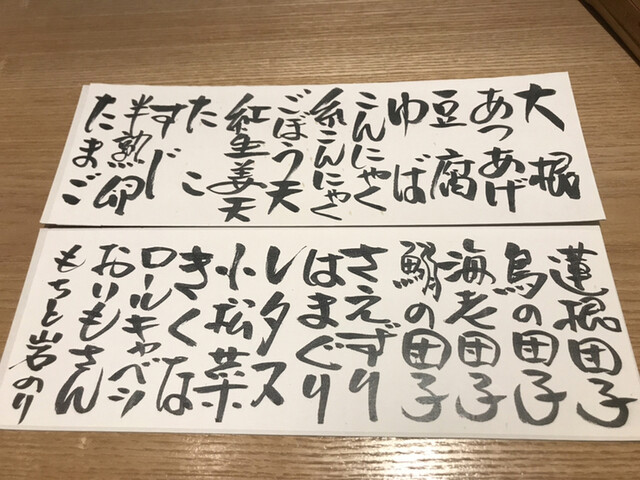 大根
あつあげ
豆腐
ゆば
こんにゃく
糸こんにゃく
ごぼう天
紅生姜天
たこ
すじ
半熟卵
たまご
蓮根団子
鳥の団子
海老団子
鰯の団子
さえずり
はまぐり
レタス
小松菜
きくな
ロールキャベツ
おりもさん
もちと岩のり